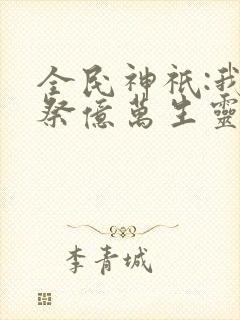 全民神祇:我
祭億萬生靈
李青城